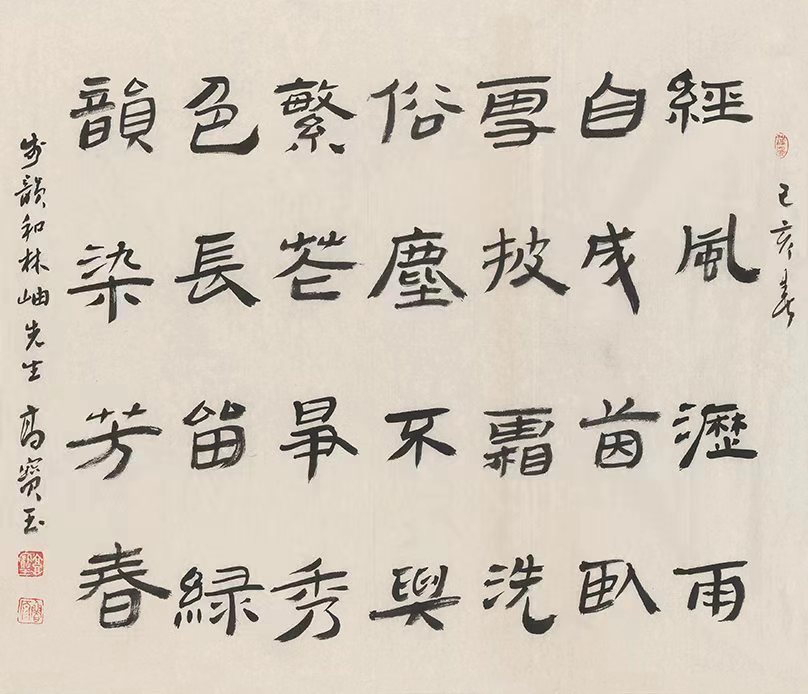 己亥春
經風瀝雨
自成茵臥
雪披霜洗
俗塵不與
繁花爭秀
色長留綠
韻染芳春
步韻和林岫先生 高寶玉